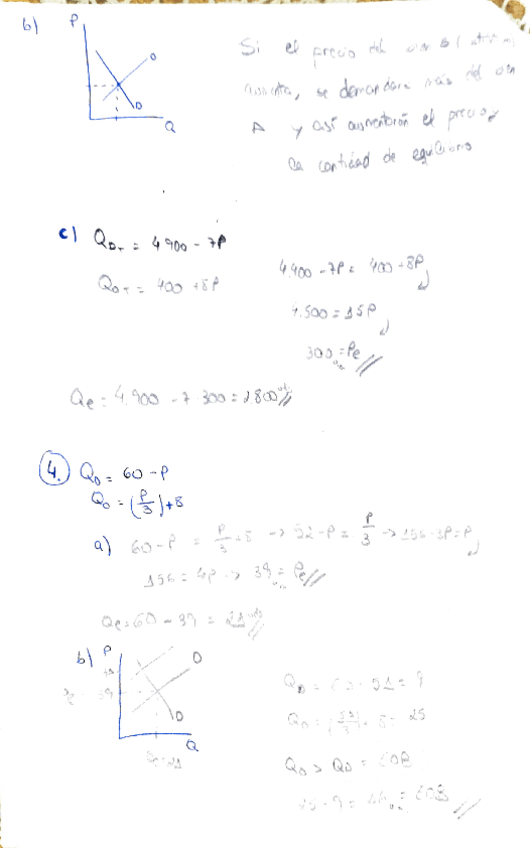 b)
P
O
D
Q
Si el precio del
aumenta, se demandara más del bien
A y así aumentarán el precio y
la cantidad de equilibrio
c) Q_DT = 4900 - 7P
Q_OT = 400 + 8P
4.900 - 7P = 400 + 8P
4.500 = 15P
300 = Pe
Qe = 4.900 - 7 · 300 = 2800
4. Q_D = 60 - P
Q_O = (P/3) + 8
a) 60 - P = P/3 + 8 → 52 - P = P/3 → 156 - 3P = P
156 = 4P → 39 = Pe
Qe = 60 - 39 = 21 uds
b)
P
O
D
Q
Qe = 21
Q_D = 60 - 51 = 9
Q_O = (51/3) + 8 = 25
Q_O > Q_D =
25 - 9 = 16